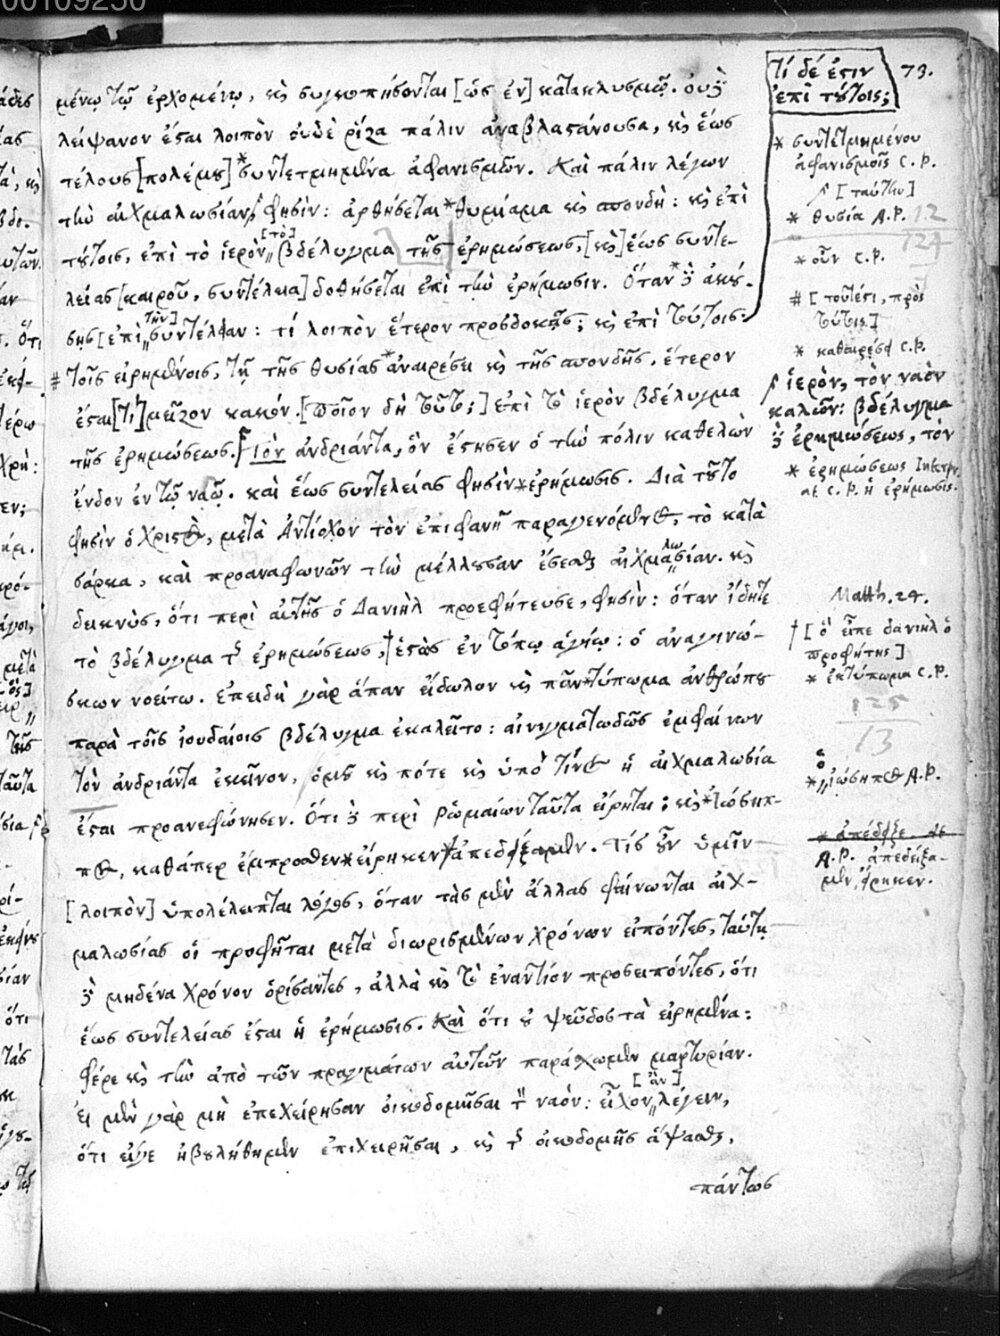 00109250
73.
μένῳ τῷ ἐρχομένῳ, κ̀ συγκοπήσονται [ὡς ἐν] κατακλυσμῷ. οὐ γὰρ
λείψανον ἔσαι λοιπὸν οὐδὲ ῥίζα πάλιν ἀναβλαστάνουσα, κ̀ ἕως
τέλους [πολέμου] * συντετμημένα ἀφανισμῶν. Καὶ πάλιν λέγων
τὴν αἰχμαλωσίαν, φησίν: ἀρθήσεται * θυμίαμα κ̀ σπονδή: κ̀ ἐπὶ
τούτοις, ἐπὶ τὸ ἱερὸν [τὸ] βδέλυγμα τῆς ἐρημώσεως, [κ̀] ἕως συντε-
λείας [καιροῦ, συντέλεια] δοθήσεται ἐπὶ τὴν ἐρήμωσιν. Ὅταν * γὰρ ἀκού-
σῃς [ἐπὶ [τὴν] συντέλειαν: τί λοιπὸν ἕτερον προσδοκᾷς; κ̀ ἐπὶ τούτοις:
# τοῖς εἰρημένοις, τῇ τῆς θυσίας * ἀναιρέσει κ̀ τῆς σπονδῆς, ἕτερον
ἔσαι [τι] μεῖζον κακόν. [ποῖον δὴ τοῦτο;] ἐπὶ τὸ ἱερὸν βδέλυγμα
τῆς ἐρημώσεως. Τὸν ἀνδριάντα, ὃν ἔστησεν ὁ τὴν πόλιν καθελὼν
ἔνδον ἐν τῷ ναῷ. καὶ ἕως συντελείας φησὶν * ἐρήμωσις. Διὰ τοῦτο
φησὶν ὁ Χριστὸς, μετὰ Ἀντίοχον τὸν ἐπιφανῆ παραγενόμενος, τὸ κατὰ
σάρκα, καὶ προαναφωνῶν τὴν μέλλουσαν ἔσεσθαι αἰχμαλωσίαν. κ̀
δεικνὺς, ὅτι περὶ αὐτῆς ὁ Δανιὴλ προεφήτευσε, φησίν: ὅταν ἴδητε
τὸ βδέλυγμα τῆς ἐρημώσεως, † ἑστὼς ἐν τόπῳ ἁγίῳ: ὁ ἀναγινώ-
σκων νοείτω. ἐπειδὴ γὰρ ἅπαν εἴδωλον κ̀ πᾶν * τύπωμα ἀνθρώπου
παρὰ τοῖς ἰουδαίοις βδέλυγμα ἐκαλεῖτο: αἰνιγματωδῶς ἐμφαίνων
τὸν ἀνδριάντα ἐκεῖνον, ὁμοῦ κ̀ πότε κ̀ ὑπὸ τίνος ἡ αἰχμαλωσία
ἔσαι προανεφώνησεν. Ὅτι γὰρ περὶ Ῥωμαίων ταῦτα εἴρηται: κ̀ * Ἰώσηπ-
πος, καθάπερ ἔμπροσθεν * εἴρηκεν * ἀπεδείξαμεν. Τίς οὖν ὑμῖν
[λοιπὸν] ὑπολέλειπται λόγος, ὅταν τὰς μὲν ἄλλας φαίνωνται αἰχ-
μαλωσίας οἱ προφῆται μετὰ διωρισμένων χρόνων εἰπόντες, ταύτῃ
γὰρ μηδένα χρόνον ὁρίσαντες, ἀλλὰ κ̀ τὸ ἐναντίον προσειπόντες, ὅτι
ἕως συντελείας ἔσαι ἡ ἐρήμωσις. Καὶ ὅτι οὐ ψεῦδος τὰ εἰρημένα:
φέρε κ̀ τὴν ἀπὸ τῶν πραγμάτων αὐτῶν παράσχωμεν μαρτυρίαν.
εἰ μὲν γὰρ μὴ ἐπεχείρησαν οἰκοδομῆσαι τὸν ναὸν: εἶχον [ἂν] λέγειν,
ὅτι εἴγε ἠβουλήθημεν ἐπιχειρῆσαι, κ̀ τῆς οἰκοδομῆς ἅψασθαι,
πάντως
τί δέ ἐστιν
ἐπὶ τούτοις;
* συντετμημένου
ἀφανισμοῖς C. P.
[ταύτην]
* θυσία A.P. 12
124
* οὖν C. P.
# [τουτέστι, πρὸς
τούτοις]
* καθαιρέσει C. P.
ἱερὸν, τὸν ναὸν
καλῶν: βδέλυγμα
τῆς ἐρημώσεως, τὸν
* ἐρημώσεως Interpr.
at C. P. ἡ ἐρήμωσις.
Matth. 24.
† [ὃ εἶπε δανιὴλ ὁ
προφήτης]
* ἐκτύπωμα C. P.
125
13
* ὁ ἰώσηπος A. P.
* ἀπέδειξε
A. P. ἀπεδείξα-
μεν, εἴρηκεν.